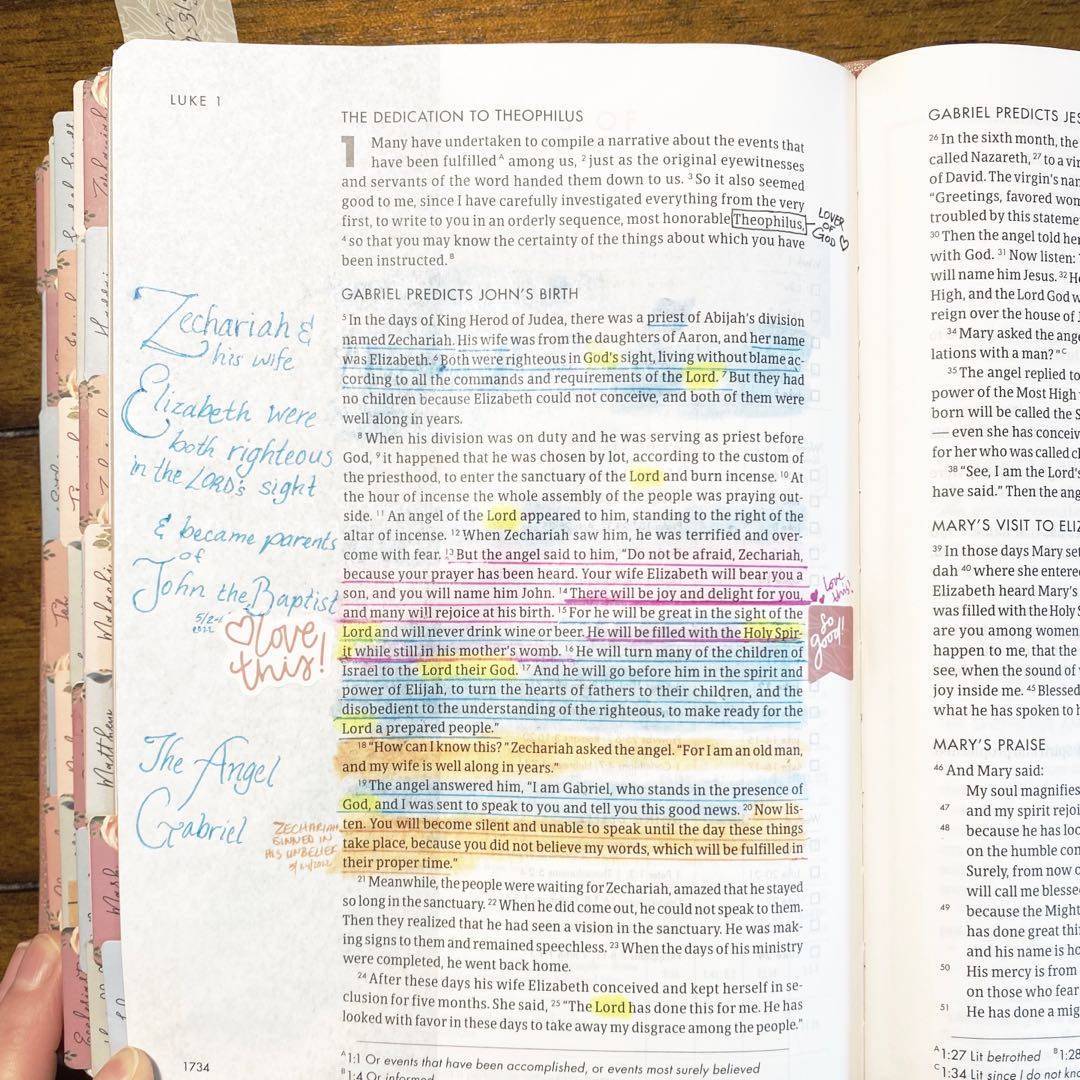 LUKE 1
THE DEDICATION TO THEOPHILUS
1 Many have undertaken to compile a narrative about the events that
have been fulfilled ᴬ among us, ² just as the original eyewitnesses
and servants of the word handed them down to us. ³ So it also seemed
good to me, since I have carefully investigated everything from the very
first, to write to you in an orderly sequence, most honorable Theophilus,
⁴ so that you may know the certainty of the things about which you have
been instructed. ᴮ
LOVER
OF
GOD
GABRIEL PREDICTS JOHN'S BIRTH
⁵ In the days of King Herod of Judea, there was a priest of Abijah's division
named Zechariah. His wife was from the daughters of Aaron, and her name
was Elizabeth. ⁶ Both were righteous in God's sight, living without blame ac-
cording to all the commands and requirements of the Lord. ⁷ But they had
no children because Elizabeth could not conceive, and both of them were
well along in years.
⁸ When his division was on duty and he was serving as priest before
God, ⁹ it happened that he was chosen by lot, according to the custom of
the priesthood, to enter the sanctuary of the Lord and burn incense. ¹⁰ At
the hour of incense the whole assembly of the people was praying out-
side. ¹¹ An angel of the Lord appeared to him, standing to the right of the
altar of incense. ¹² When Zechariah saw him, he was terrified and over-
come with fear. ¹³ But the angel said to him, “Do not be afraid, Zechariah,
because your prayer has been heard. Your wife Elizabeth will bear you a
son, and you will name him John. ¹⁴ There will be joy and delight for you,
and many will rejoice at his birth. ¹⁵ For he will be great in the sight of the
Lord and will never drink wine or beer. He will be filled with the Holy Spir-
it while still in his mother's womb. ¹⁶ He will turn many of the children of
Israel to the Lord their God. ¹⁷ And he will go before him in the spirit and
power of Elijah, to turn the hearts of fathers to their children, and the
disobedient to the understanding of the righteous, to make ready for the
Lord a prepared people.”
¹⁸ “How can I know this?” Zechariah asked the angel. “For I am an old man,
and my wife is well along in years.”
¹⁹ The angel answered him, “I am Gabriel, who stands in the presence of
God, and I was sent to speak to you and tell you this good news. ²⁰ Now lis-
ten. You will become silent and unable to speak until the day these things
take place, because you did not believe my words, which will be fulfilled in
their proper time.”
²¹ Meanwhile, the people were waiting for Zechariah, amazed that he stayed
so long in the sanctuary. ²² When he did come out, he could not speak to them.
Then they realized that he had seen a vision in the sanctuary. He was mak-
ing signs to them and remained speechless. ²³ When the days of his ministry
were completed, he went back home.
²⁴ After these days his wife Elizabeth conceived and kept herself in se-
clusion for five months. She said, ²⁵ “The Lord has done this for me. He has
looked with favor in these days to take away my disgrace among the people.”
ᴬ 1:1 Or events that have been accomplished, or events most surely believed
ᴮ 1:4 Or informed
1734
Zechariah &
his wife
Elizabeth were
both righteous
in the LORD's sight
& became parents
of
John the Baptist
2022
love
this!
The Angel
Gabriel
ZECHARIAH
SINNED IN
HIS UNBELIEF
5/24/2022
love
this!
so
good!!
Zechariah
Malachi
Matthew
Mark
GABRIEL PREDICTS JES
²⁶ In the sixth month, the
called Nazareth, ²⁷ to a vir
of David. The virgin's nam
“Greetings, favored wom
troubled by this stateme
³⁰ Then the angel told her
with God. ³¹ Now listen:
will name him Jesus. ³² He
High, and the Lord God w
reign over the house of J
³⁴ Mary asked the ange
lations with a man?” ᶜ
³⁵ The angel replied to
power of the Most High
born will be called the S
— even she has conceiv
for her who was called ch
³⁸ “See, I am the Lord's
have said.” Then the ang
MARY'S VISIT TO ELIZ
³⁹ In those days Mary set
dah ⁴⁰ where she entere
Elizabeth heard Mary's
was filled with the Holy S
are you among women
happen to me, that the
see, when the sound of
joy inside me. ⁴⁵ Blessed
what he has spoken to h
MARY'S PRAISE
⁴⁶ And Mary said:
My soul magnifies
⁴⁷ and my spirit rejoi
⁴⁸ because he has loo
on the humble con
Surely, from now o
will call me blesse
⁴⁹ because the Might
has done great thin
and his name is ho
⁵⁰ His mercy is from
on those who fear
⁵¹ He has done a mig
ᴬ 1:27 Lit betrothed ᴮ 1:28
ᶜ 1:34 Lit since I do not kno